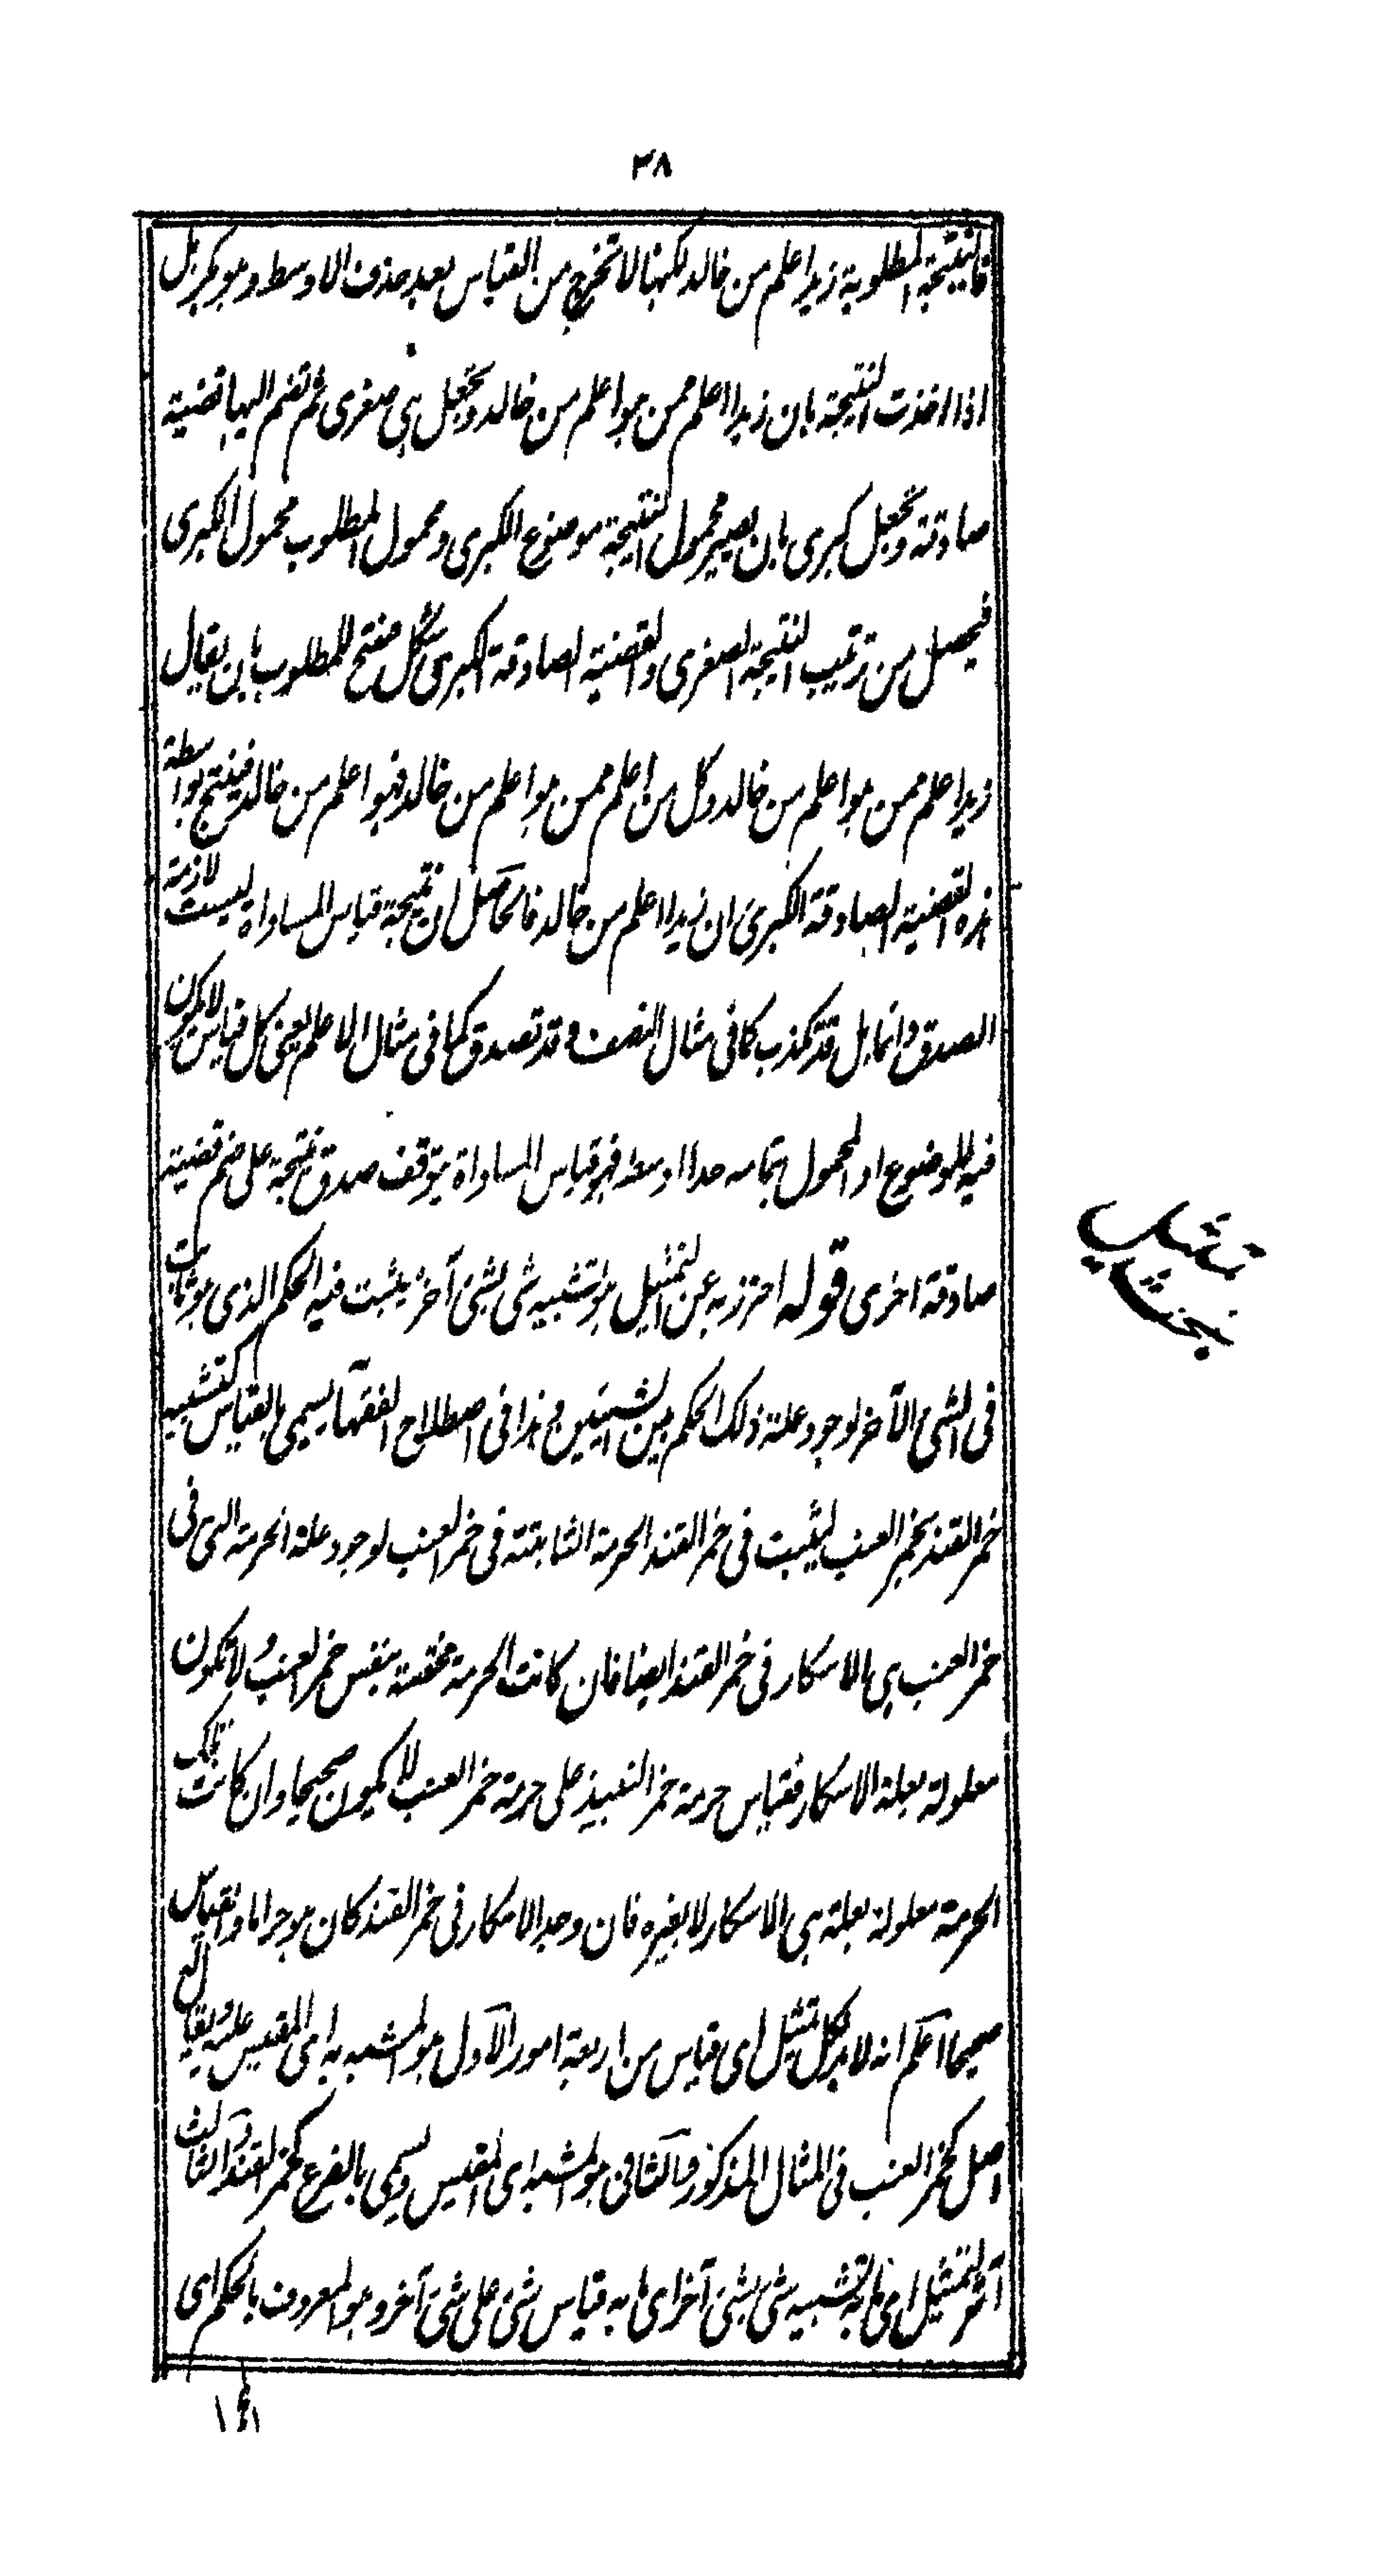 ٣٨
فالنتيجة المطلوبة زيد اعلم من خالد لكنها لا تخرج من القياس بعد حذف الاوسط وهو بكر بل
اذا اخذت النتيجة بان زيدا اعلم ممن هو اعلم من خالد وتجعل هي صغرى ثم تضم اليها قضية
صادقة وتجعل كبرى بان يصير محمول النتيجة موضوع الكبرى ومحمول المطلوب محمول الكبرى
فيحصل من ترتيب النتيجة الصغرى والقضية الصادقة الكبرى شكل منتج للمطلوب بان يقال
زيد اعلم ممن هو اعلم من خالد وكل من اعلم ممن هو اعلم من خالد فهو اعلم من خالد فينتج بواسطة
هذه القضية الصادقة الكبرى ان زيدا اعلم من خالد فالحاصل ان نتيجة قياس المساواة ليست لازمة
الصدق دائما بل قد تكذب كما فى مثال النصف وقد تصدق كما فى مثال الاعلم يعنى كل قياس لا يكون
فيه الموضوع او المحمول بتمامه حدا اوسط فهو قياس المساواة يتوقف صدق نتيجة على ضم قضية
صادقة اخرى قوله احترز به عن التمثيل هو تشبيه شى بشئ آخر يثبت فيه الحكم الذى هو ثابت
فى الشئ الآخر لوجود علة ذلك الحكم بين الشيئين وهذا فى اصطلاح الفقهآ يسمى بالقياس كتشبيه
خمر القند بخمر العنب ليثبت فى خمر القند الحرمة الثابتة فى خمر العنب لوجود علة الحرمة التى فى
خمر العنب هى الاسكار فى خمر القند ايضا فان كانت الحرمة مختصة بنفس خمر العنب ولا تكون
معلولة بعلة الاسكار فقياس حرمة خمر النبيذ على حرمة خمر العنب لا يكون صحيحا وان كانت تلك
الحرمة معلولة بعلة هى الاسكار لا بغيره فان وجد الاسكار فى خمر القند كان هو حراما والقياس
صحيحا اعلم انه لا بد لكل تمثيل اى قياس من اربعة امور الاول هو المشبه به اى المقيس عليه ويقال له
اصل كخمر العنب فى المثال المذكور والثانى هو المشبه اى المقيس ويسمى بالفرع كخمر القند والثالث
اثر التمثيل اى ما به تشبيه شئ بشئ آخر اى ما به قياس شئ على شئ آخر وهو المعروف بالحكم اى
بحث تمثيل